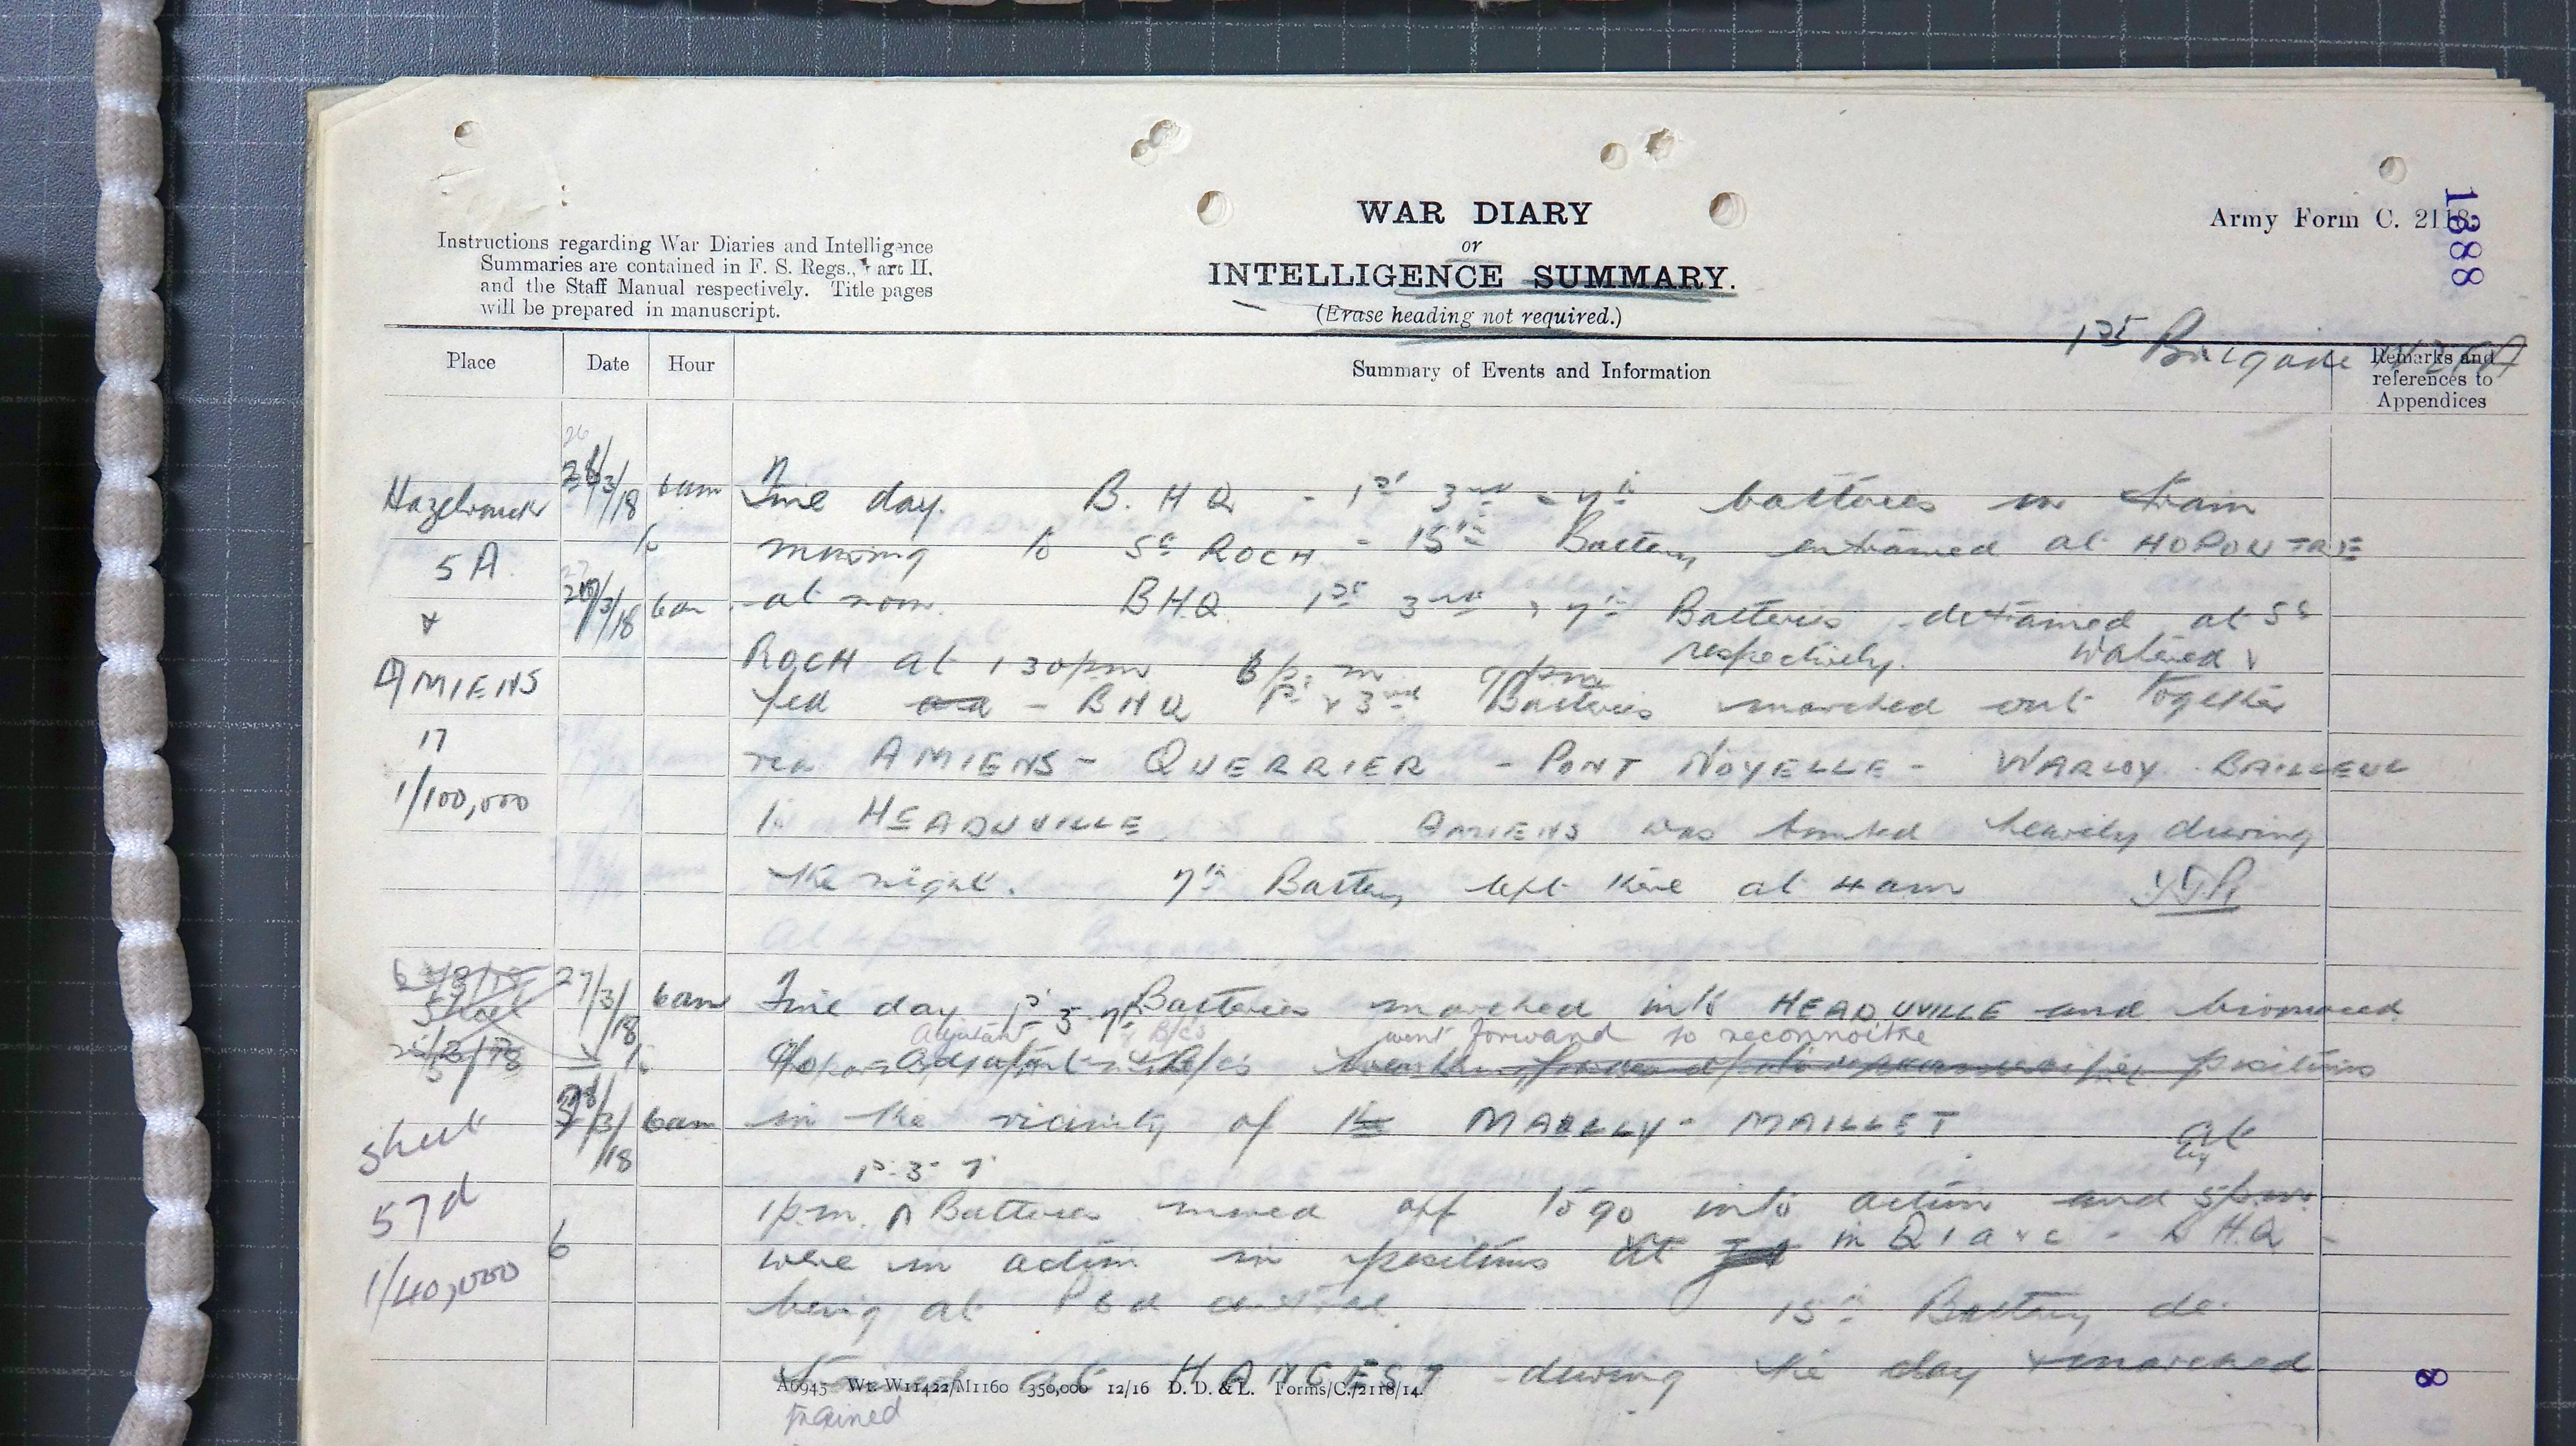 WAR DIARY
or
INTELLIGENCE SUMMARY.
(Erase heading not required.)
Instructions regarding War Diaries and Intelligence
Summaries are contained in F. S. Regs., Part II.
and the Staff Manual respectively. Title pages
will be prepared in manuscript.
Army Form C. 2118.
1888
1st Brigade NZFA
Place Date Hour Summary of Events and Information Remarks and
references to
Appendices
26
Hazebrouck /3/18 6am Fine day. B.H.Q - 1st 3rd & 7th batteries in train
5A. to moving to St ROCH - 15th Battery entrained at HOPOUTRE
27
& /3/18 6am at noon. BHQ 1st 3rd & 7th Batteries detrained at St
AMIENS ROCH at 130pm 6p.m 9pm respectively. Watered &
fed - BHQ 1st & 3rd Batteries marched out together
17 via AMIENS - QUERRIER - PONT NOYELLE - WARLOY BAILLEUL
1/100,000 to HEADUVILLE AMIENS was bombed heavily during
the night. 7th Battery left there at 4am
27/3/18 6am Fine day 1st 3 7th Batteries marched into HEADUVILLE and bivouaced
Adjutant & B/cs went forward to reconnoitre
to positions
28/3/18 6am in the vicinity of MAILLY - MAILLET At
sheet 1st 3 7
57d 1p.m. Batteries moved off to go into action and by 5p.m.
6 were in action in positions in Q1 a & c - B H.Q -
1/40,000 being at P6d central. 15th Battery de-
trained at HANGEST during the day & marched
A6945 Wt. W11422/M1160 350,000 12/16 D. D. & L. Forms/C./2118/14.
trained
8